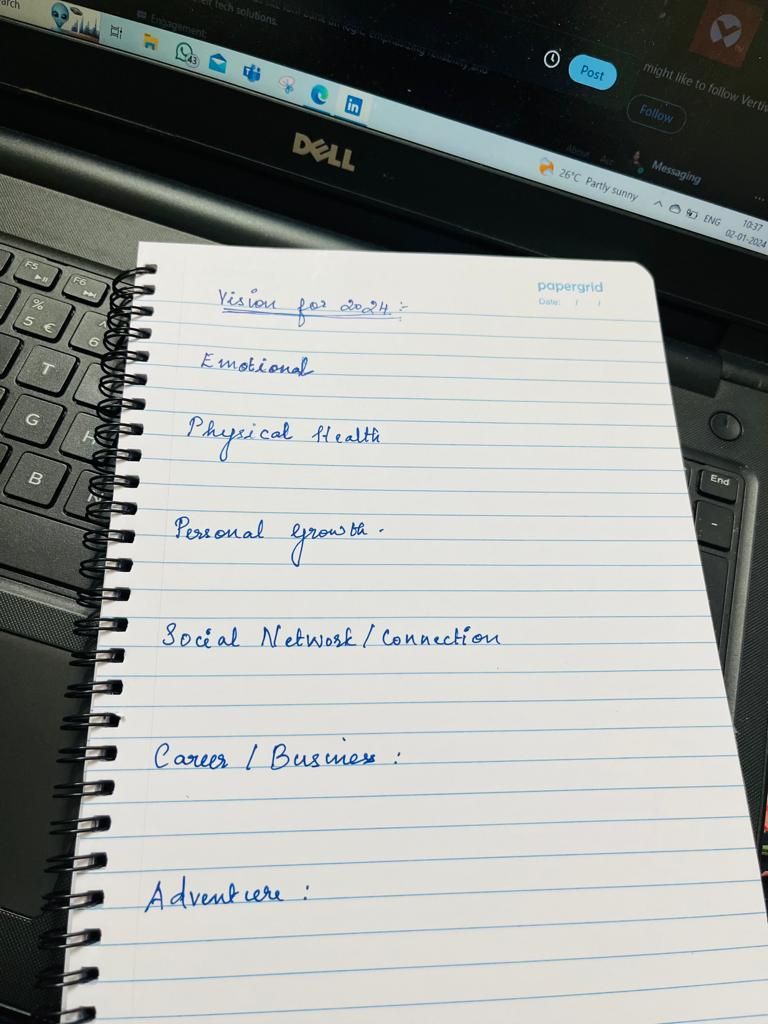 arch
eir tech solutions.
Engagement:
43
Post
might like to follow Verti
Follow
Messaging
DELL
26°C Partly sunny
ENG
10:37
02-01-2024
papergrid
Date: / /
Vision for 2024:-
Emotional
Physical Health
Personal Growth.
Social Network/Connection
Career / Business:
Adventure:
F5
F6
%
5 €
^
6
T
G
H
B
N
End
-